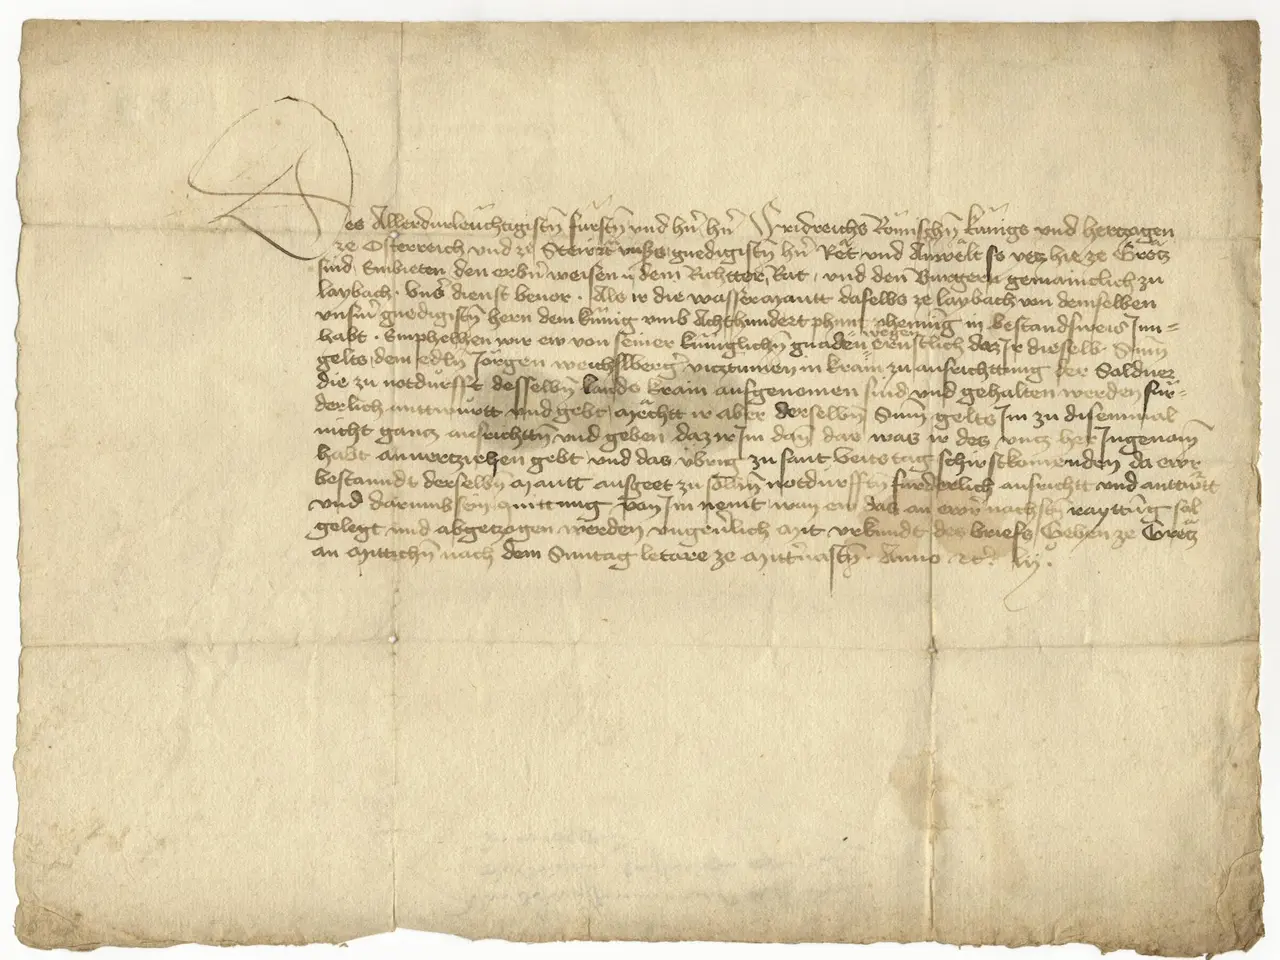 Des Allerdurleuchtigistn fürstn und hn hn Fridreichs Römischn künigs und hertzogen
ze Österreich und ze Steir unsers gnedigistn hn Rät und Anwëlt so yetz hie ze Grëtz
sind Embieten den erbn weisen dem Richtter Rat und den Burgern gemainclich zu
laybach unsr dienst beuor. Als ir die wassermautt daselbs ze laybach von demselben
unsrm gnedigistn hern dem künig umb Achthundert phunt phening in bestandsweis Inn=
habt. Emphelhen wir ew von seiner küniglichn gnaden wegen ernstlich daz Ir dieselb Summ
gelts dem edln Jörgen weichslberger vicztumen in krain zu ausrichttung der Soldner
die zu notdurfft desselbn lands krain aufgenomen sind und gehalten werden für=
derlich anttwürtt und gebt, mëchtt ir aber derselbn Summ gelts Im zu disemmal
nicht gancz ausrichttn und geben daz ir Im dann das was ir des uncz her Ingenomn
habt anuertziehen gebt und das übrig zu sant veitstag schirstkomenden da ewr
bestanndt derselbn mautt ausgeet zu solhn notdurfftn fürderlich ausrichtt und anttwürtt
und darumb sein quittung von Im nemt wan ew das an ewrr nachstn rayttung sol
gelegt und abgetzogen werden ungeuerlich Mit urkundt des briefs Geben ze Grëtz
an Mittichn nach dem Sunntag letare ze Mitteruastn. Anno etc. lij.